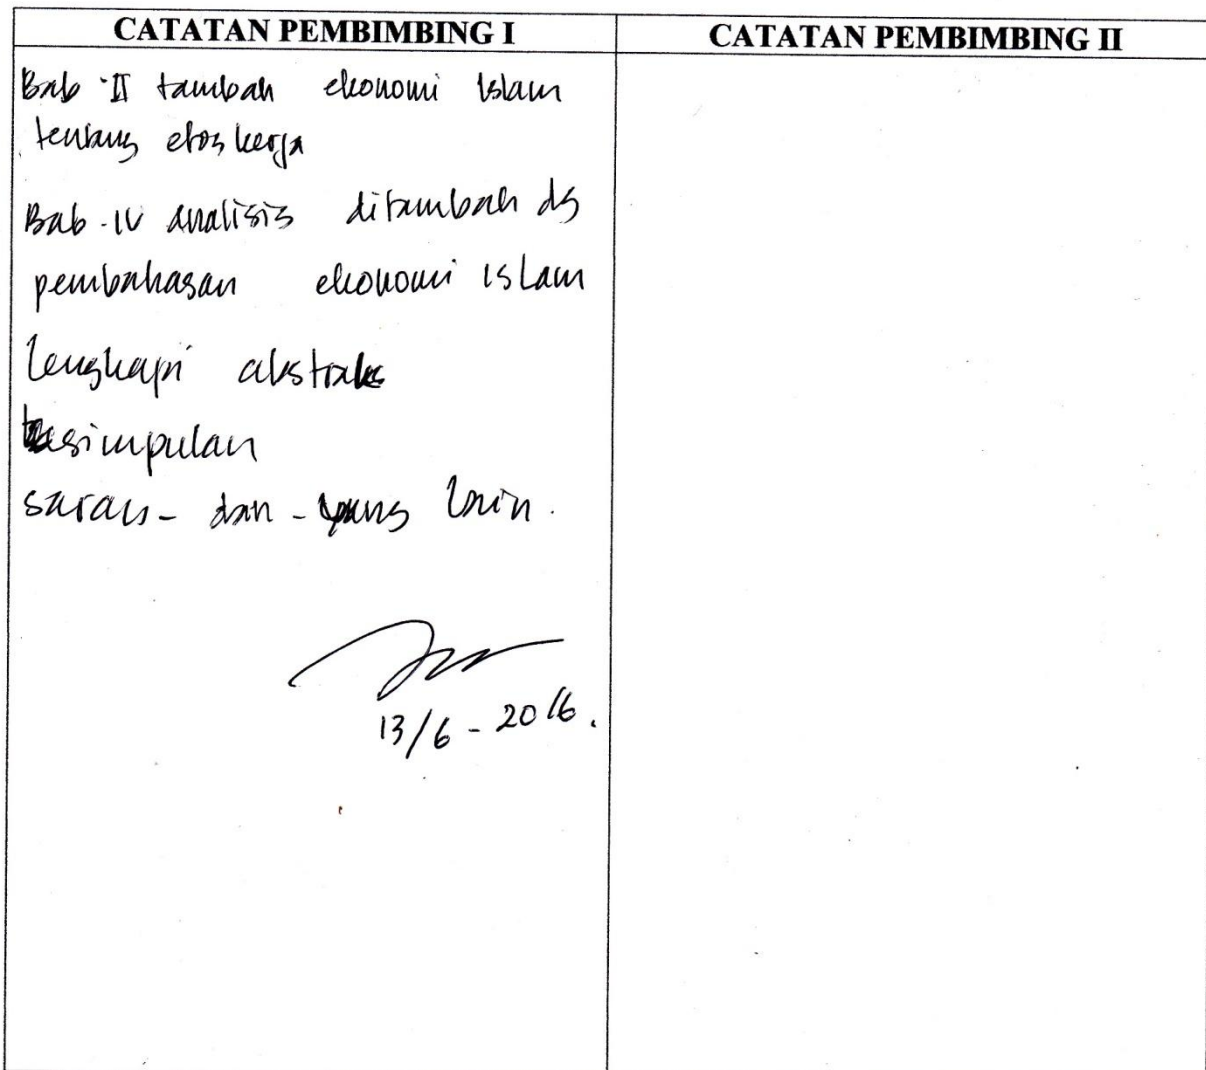 CATATAN PEMBIMBING I
CATATAN PEMBIMBING II
Bab II tambah ekonomi Islam
tentang etos kerja
Bab-IV analisis ditambah dg
pembahasan ekonomi islam
lengkapi abstraks
kesimpulan
saran - dan - yang lain.
13/6 - 2016.